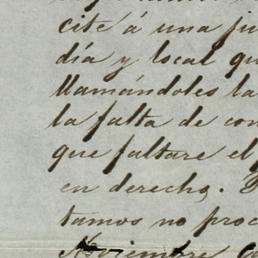 cite á una ju
día y local qu
llamándoles la
la falta de con
que faltare el
en derecho.
tamos no proc
Noviembre